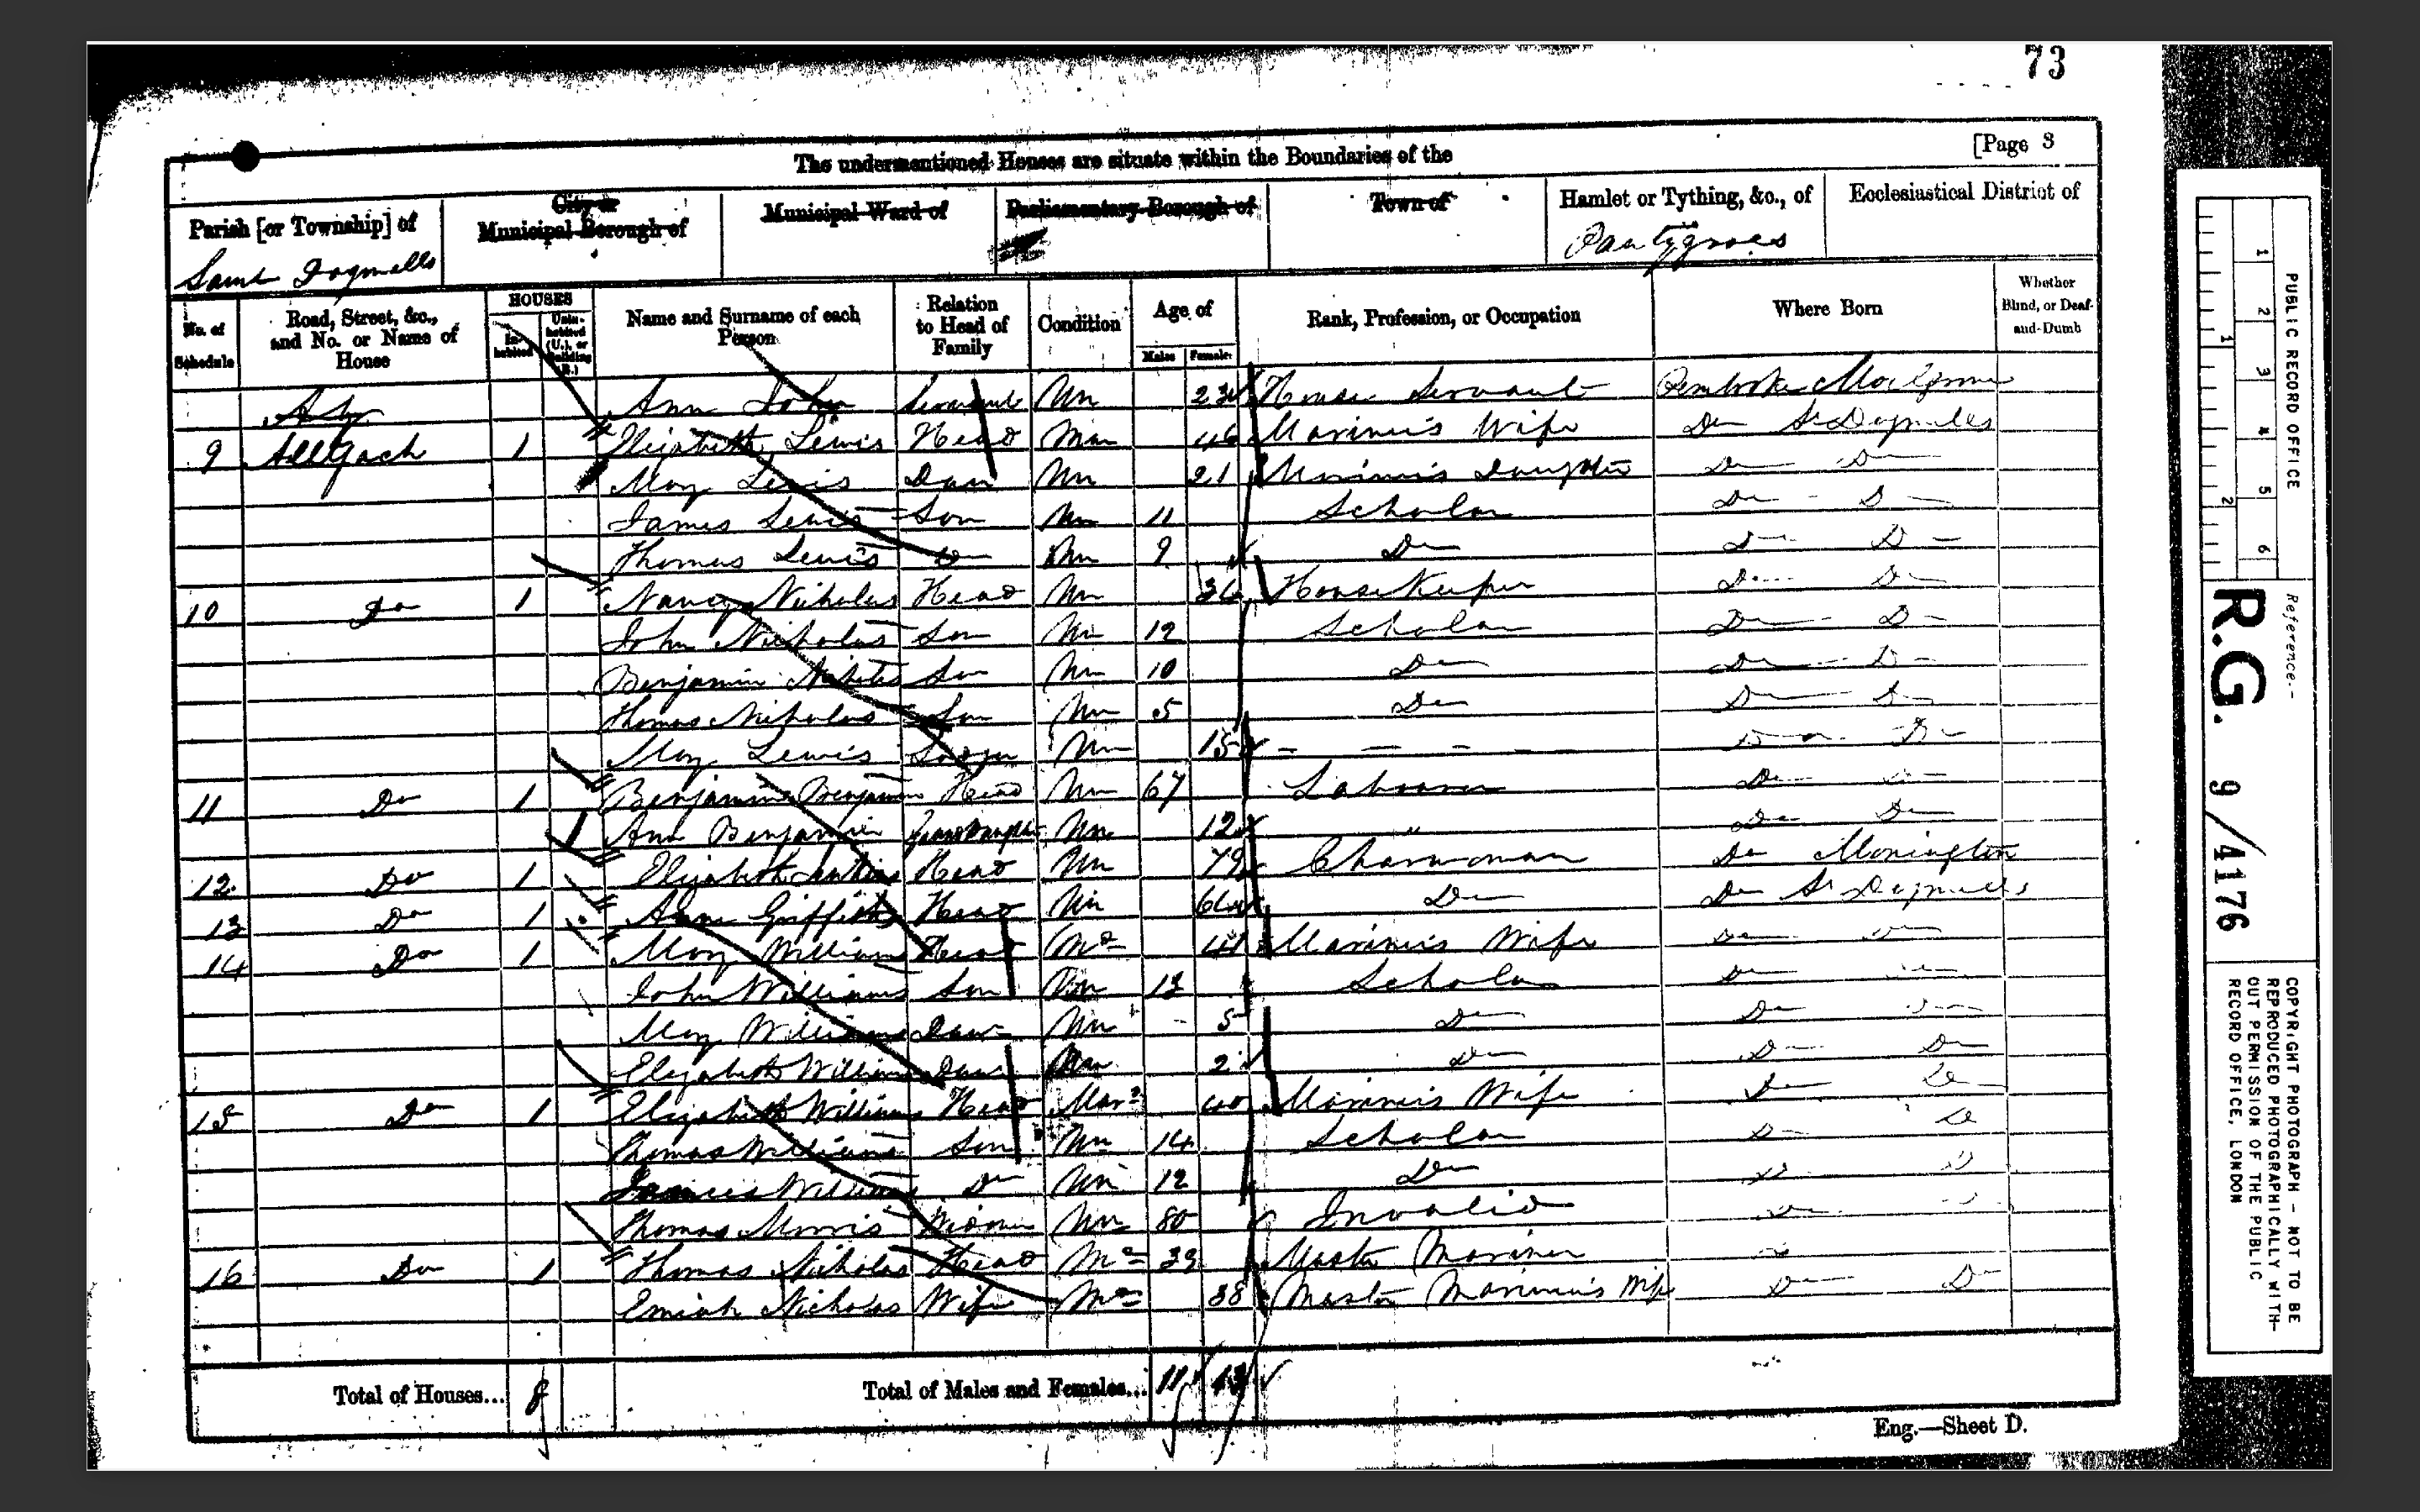 73
[Page 3
The undermentioned Houses are situate within the Boundaries of the
Parish [or Township] of
City or Municipal Borough of
Municipal Ward of
Parliamentary Borough of
Town of
Hamlet or Tything, &c., of
Ecclesiastical District of
Saint Dogmells
Pantygroes
No. of Schedule
Road, Street, &c., and No. or Name of House
HOUSES
In-habited
Unin-habited (U.), or Building (B.)
Name and Surname of each Person
Relation to Head of Family
Condition
Age of
Males
Females
Rank, Profession, or Occupation
Where Born
Whether Blind, or Deaf-and-Dumb
Ann John Servant Un 23 House Servant Pembroke
9 1 Elizabeth Lewis Head Mar 46 Mariner's Wife Do St Dogmells
May Lewis Daur Un 21 Mariner's Daughter Do Do
James Lewis Son Un 11 Scholar Do Do
Thomas Lewis Do Un 9 Do Do Do
10 Do 1 Nancy Nicholas Head Un 36 House Keeper Do Do
John Nicholas Son Un 12 Scholar Do Do
Benjamin Son Un 10 Do Do Do
Thomas Nicholas Son Un 5 Do Do Do
May Lewis Lodger Un 15 - - - - Do Do
11 Do 1 Benjamin Benjamin Head Un 67 Labourer Do Do
Ann Benjamin Grandaughter Un 12 " Do Do
12 Do 1 Elizabeth Head Un 79 Charwoman Do Monington
13 Do 1 Griffiths Head Un Do Do St Dogmells
14 Do 1 May Williams Head Mar 41 Mariner's Wife Do Do
John Williams Son Un 13 Scholar Do Do
May Williams Daur Un 5 Do Do Do
Elizabeth Williams Daur Un 2 Do Do Do
15 Do 1 Elizabeth Williams Head Mar 40 Mariner's Wife Do Do
Thomas Williams Son Un 14 Scholar Do Do
Williams Do Un 12 Do Do Do
Thomas Morris Un 80 Invalid Do
16 Do 1 Thomas Nicholas Head Mar 39 Master Mariner
Nicholas Wife Mar 38 Master Mariner's Wife Do Do
Total of Houses... 8
Total of Males and Females... 11 13
Eng.—Sheet D.
PUBLIC RECORD OFFICE
1 2 3 4 5 6
1 2
Reference:-
R.G. 9/4176
COPYRIGHT PHOTOGRAPH - NOT TO BE
REPRODUCED PHOTOGRAPHICALLY WITH-
OUT PERMISSION OF THE PUBLIC
RECORD OFFICE, LONDON